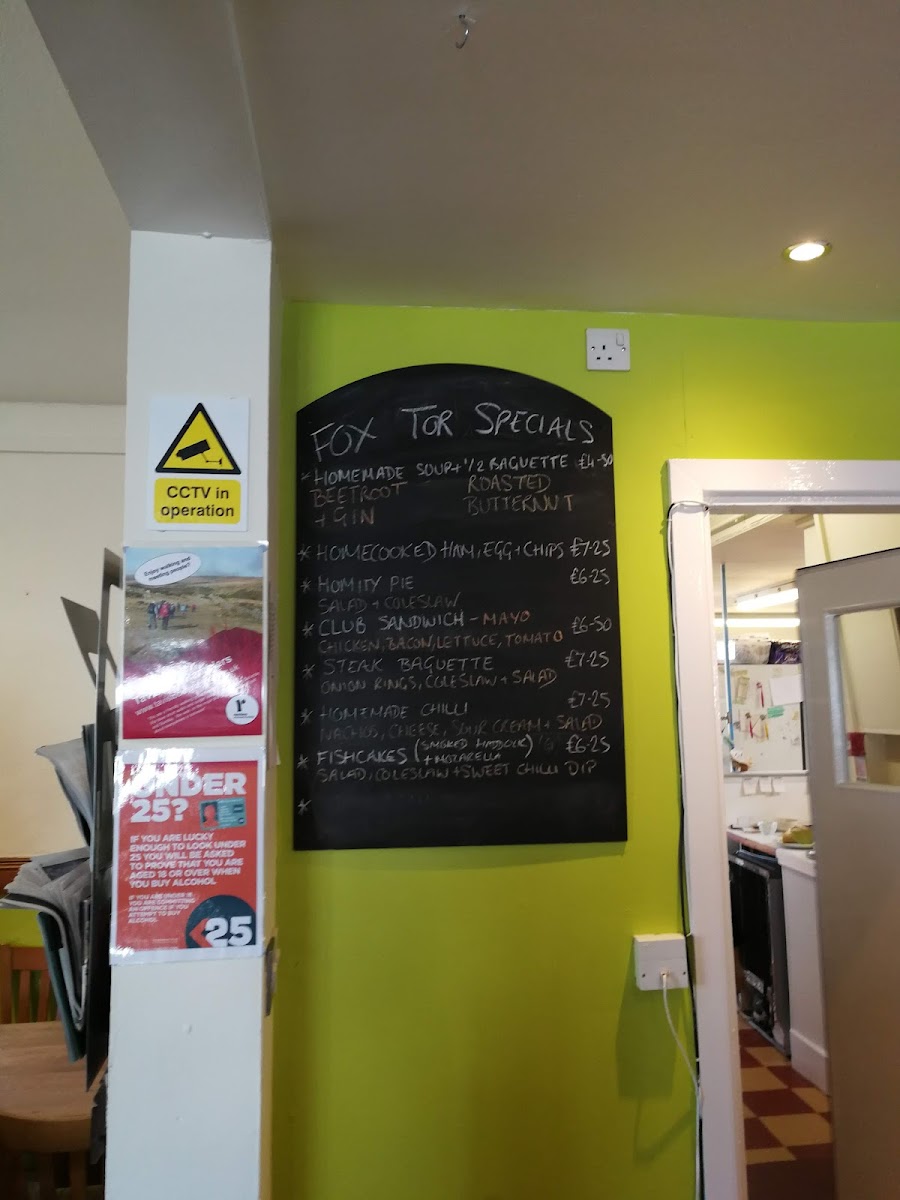 FOX TOR SPECIALS
* HOMEMADE SOUP + 1/2 BAGUETTE £4-50
BEETROOT ROASTED
+ GIN BUTTERNUT
* HOMECOOKED HAM, EGG + CHIPS £7-25
* HOMITY PIE £6-25
SALAD + COLESLAW
* CLUB SANDWICH - MAYO £6-50
CHICKEN, BACON, LETTUCE, TOMATO
* STEAK BAGUETTE £7-25
ONION RINGS, COLESLAW + SALAD
* HOMEMADE CHILLI £7-25
NACHOS, CHEESE, SOUR CREAM + SALAD
* FISHCAKES (SMOKED HADDOCK) £6-25
+ MOZARELLA
SALAD, COLESLAW + SWEET CHILLI DIP
*
CCTV in
operation
Enjoy walking and
meeting people?
r
UNDER
25?
IF YOU ARE LUCKY
ENOUGH TO LOOK UNDER
25 YOU WILL BE ASKED
TO PROVE THAT YOU ARE
AGED 18 OR OVER WHEN
YOU BUY ALCOHOL
IF YOU ARE UNDER 18
YOU ARE COMMITTING
AN OFFENCE IF YOU
ATTEMPT TO BUY
ALCOHOL
<25